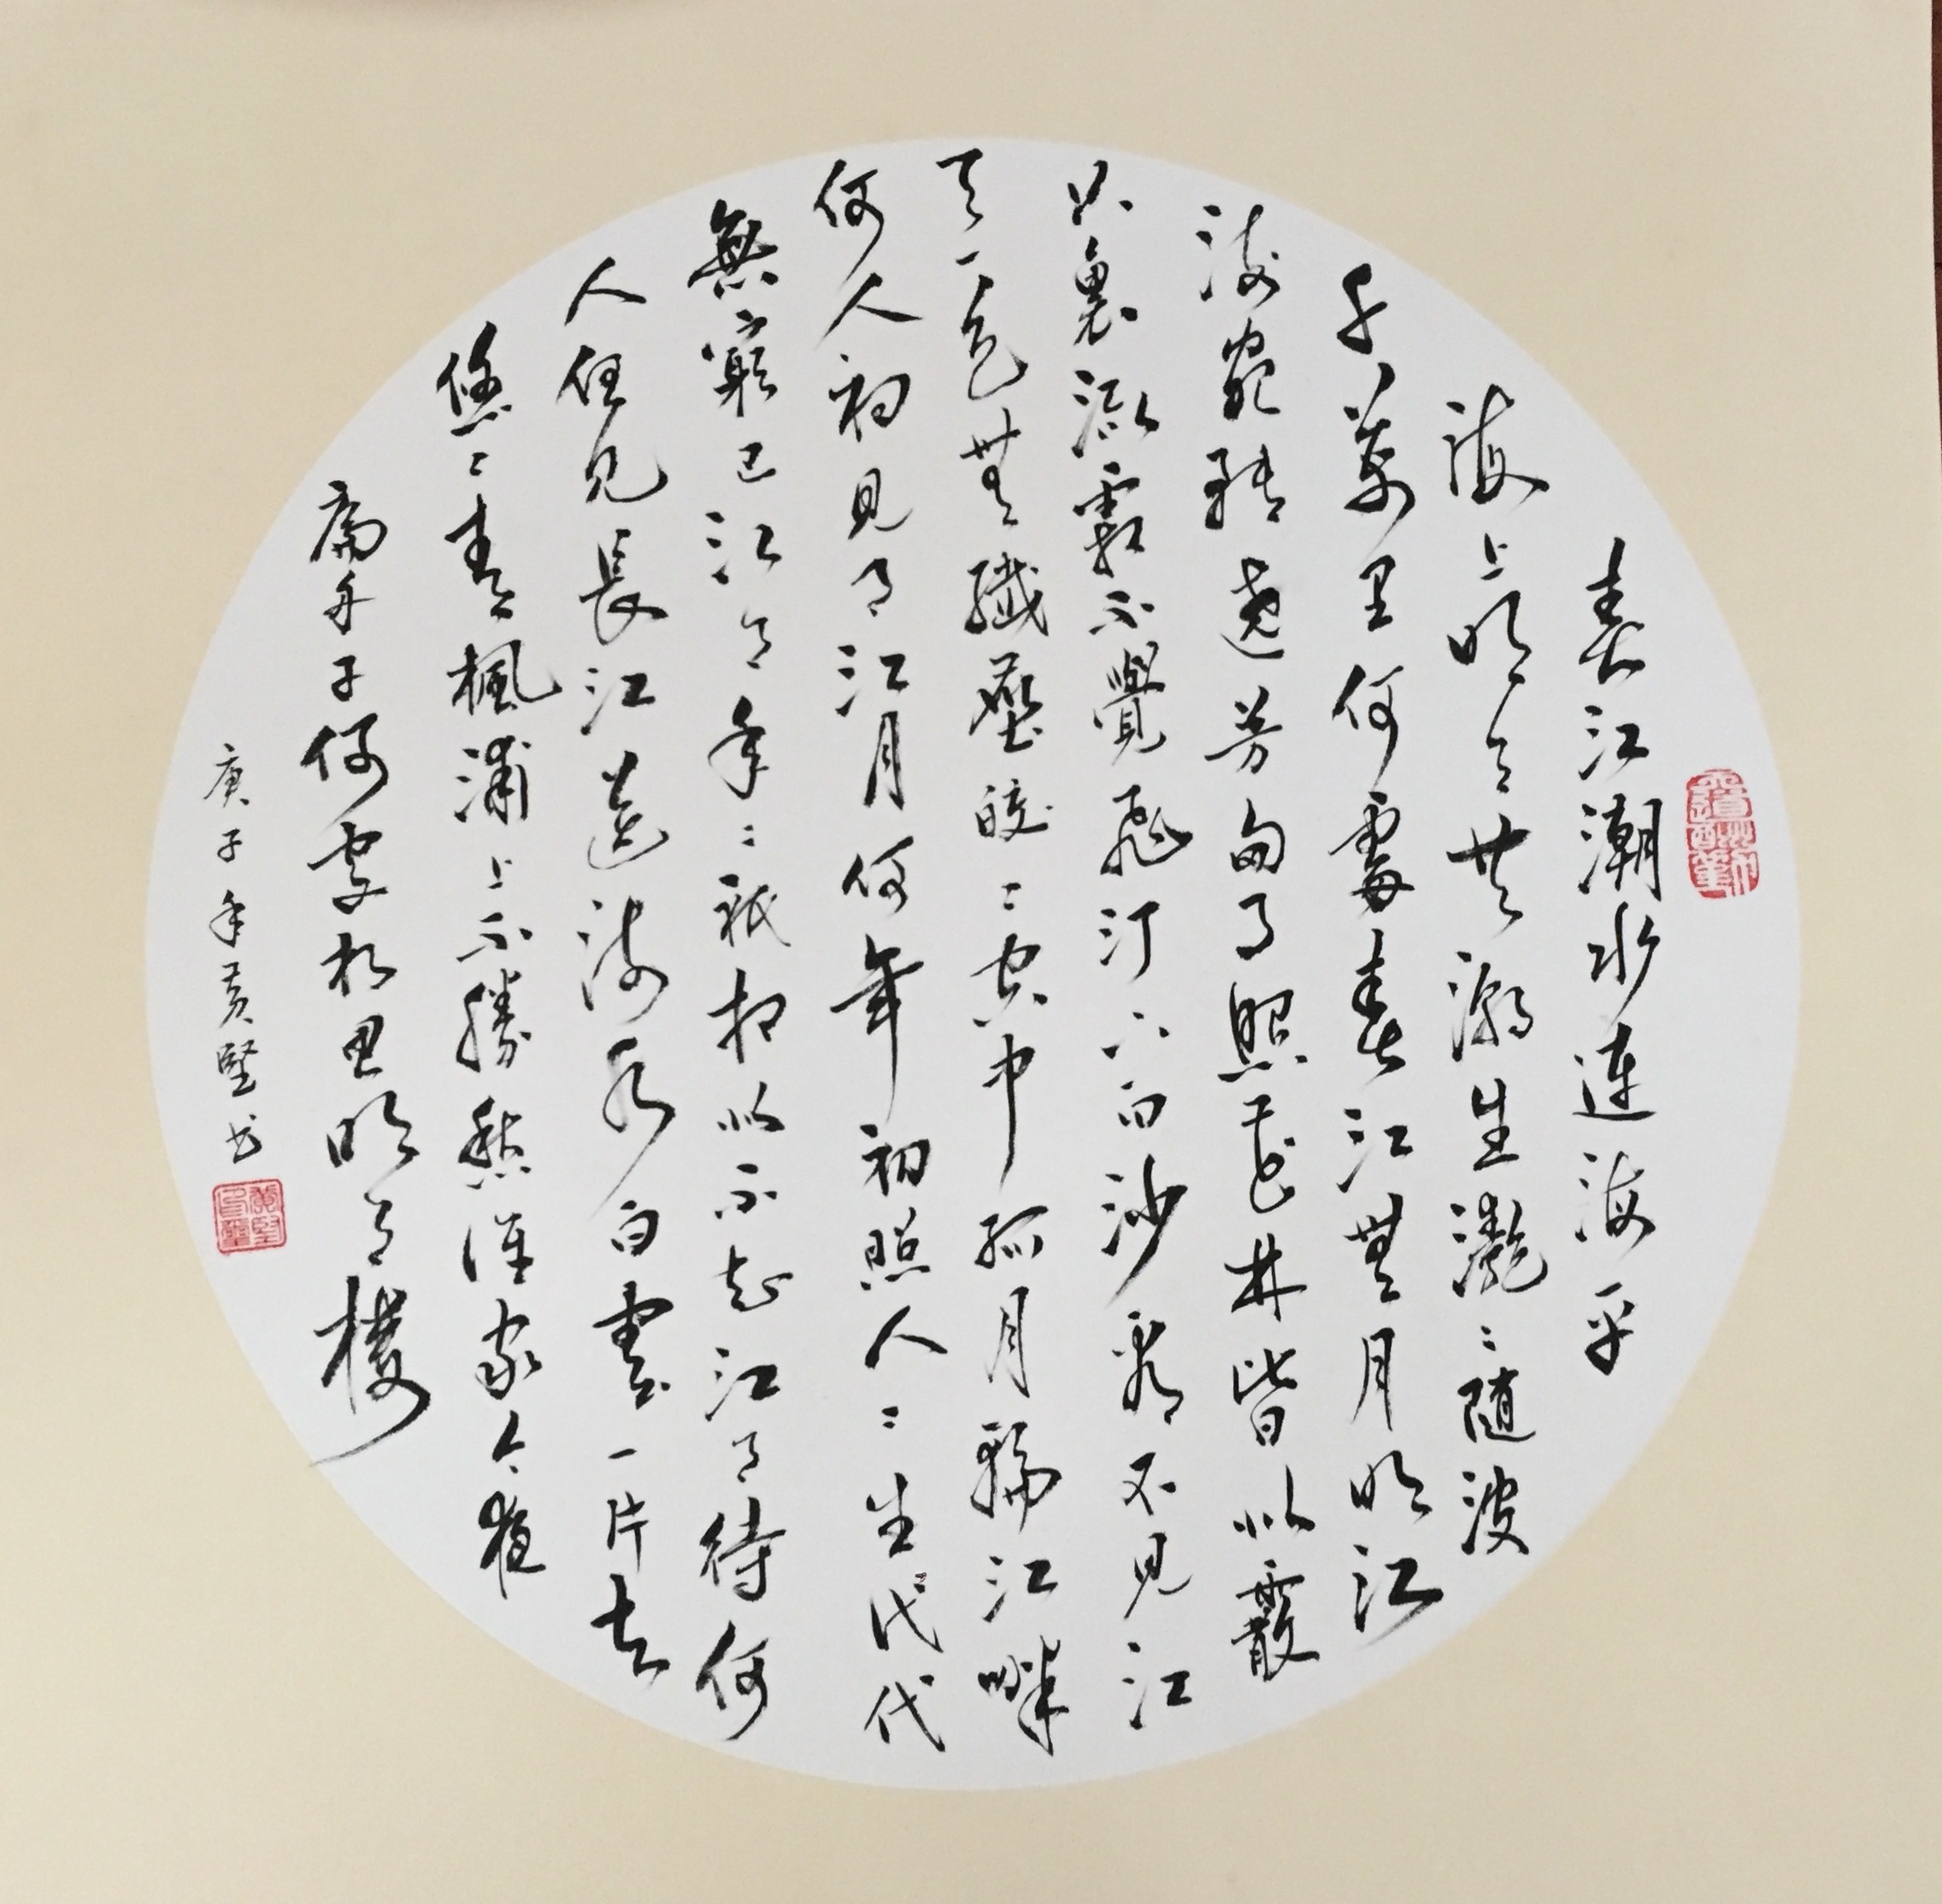 天道酬勤
春江潮水連海平
海上明月共潮生灧〻随波
千萬里何處春江無月明江
流宛轉遶芳甸月照花林皆似霰
空裏流霜不覺飛汀上白沙看不見江
天一色無纖塵皎〻空中孤月輪江畔
何人初見月江月何年初照人〻生代代
無窮已江月年〻祇相似不知江月待何
人但見長江送流水白雲一片去
悠〻青楓浦上不勝愁誰家今夜
扁舟子何處相思明月樓
庚子年黄堅书